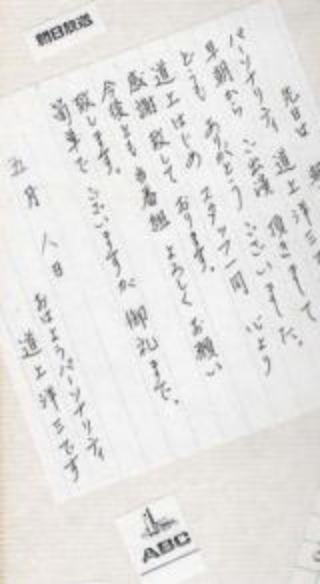 朝日放送
先日は 朝
パーソナリティ 道上洋三
早朝から ご出演 頂きまして
どうも ありがとう ございました。
道上はじめ スタッフ一同 心より
感謝致して おります。
今後とも 当番組 よろしくお願い
致します。
簡単で ございますが 御礼まで。
五月 八日
おはようパーソナリティ
道上洋三です
ABC